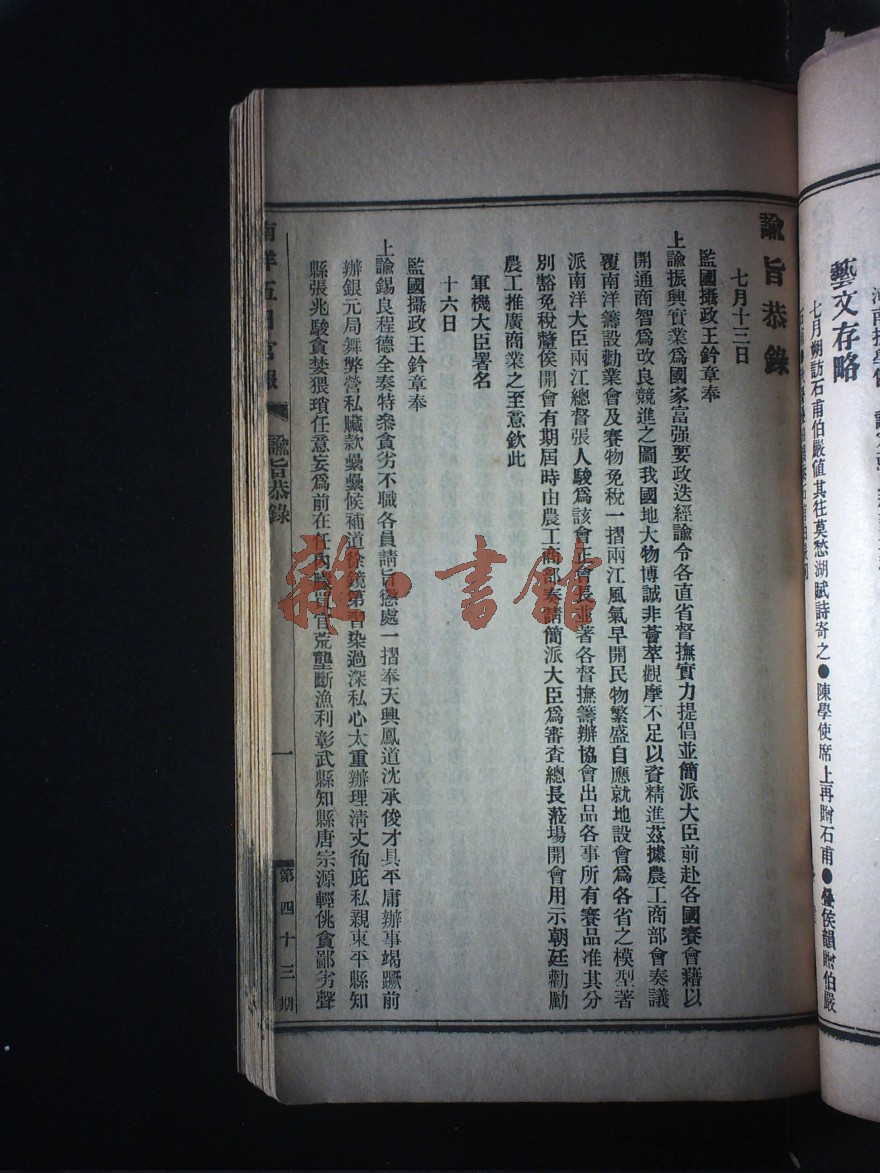 藝文存略
七月朔訪石甫伯嚴値其往莫愁湖賦詩寄之●陳學使席上再贈石甫●疊侯韻贈伯嚴
諭旨恭錄
七月十三日
監國攝政王鈐章奉
上諭振興實業爲國家富强要政迭經諭令各直省督撫實力提倡並簡派大臣前赴各國賽會藉以
開通商智爲改良競進之圖我國地大物博誠非薈萃觀摩不足以資精進茲據農工商部會奏議
覆南洋籌設勸業會及賽物免稅一摺兩江風氣早開民物繁盛自應就地設會爲各省之模型著
派南洋大臣兩江總督張人駿爲該會正會長並著各督撫籌辦協會出品各事所有賽品准其分
別豁免稅釐俟開會有期屆時由農工商部奏請簡派大臣爲審査總長蒞場開會用示朝廷勸勵
農工推廣商業之至意欽此
軍機大臣署名
十六日
監國攝政王鈐章奉
上諭錫良程德全奏特參貪劣不職各員請旨懲處一摺奉天興鳳道沈承俊才具平庸辦事竭蹶前
辦銀元局舞弊營私贓款纍纍候補道徐鏡第習染過深私心太重辦理淸丈徇庇私親東平縣知
縣張兆駿貪婪猥瑣任意妄爲前在任內官荒壟斷漁利彰武縣知縣唐宗源輕佻貪鄙劣聲
南洋五日官報
諭旨恭錄
一
第四十三期
雜·書館